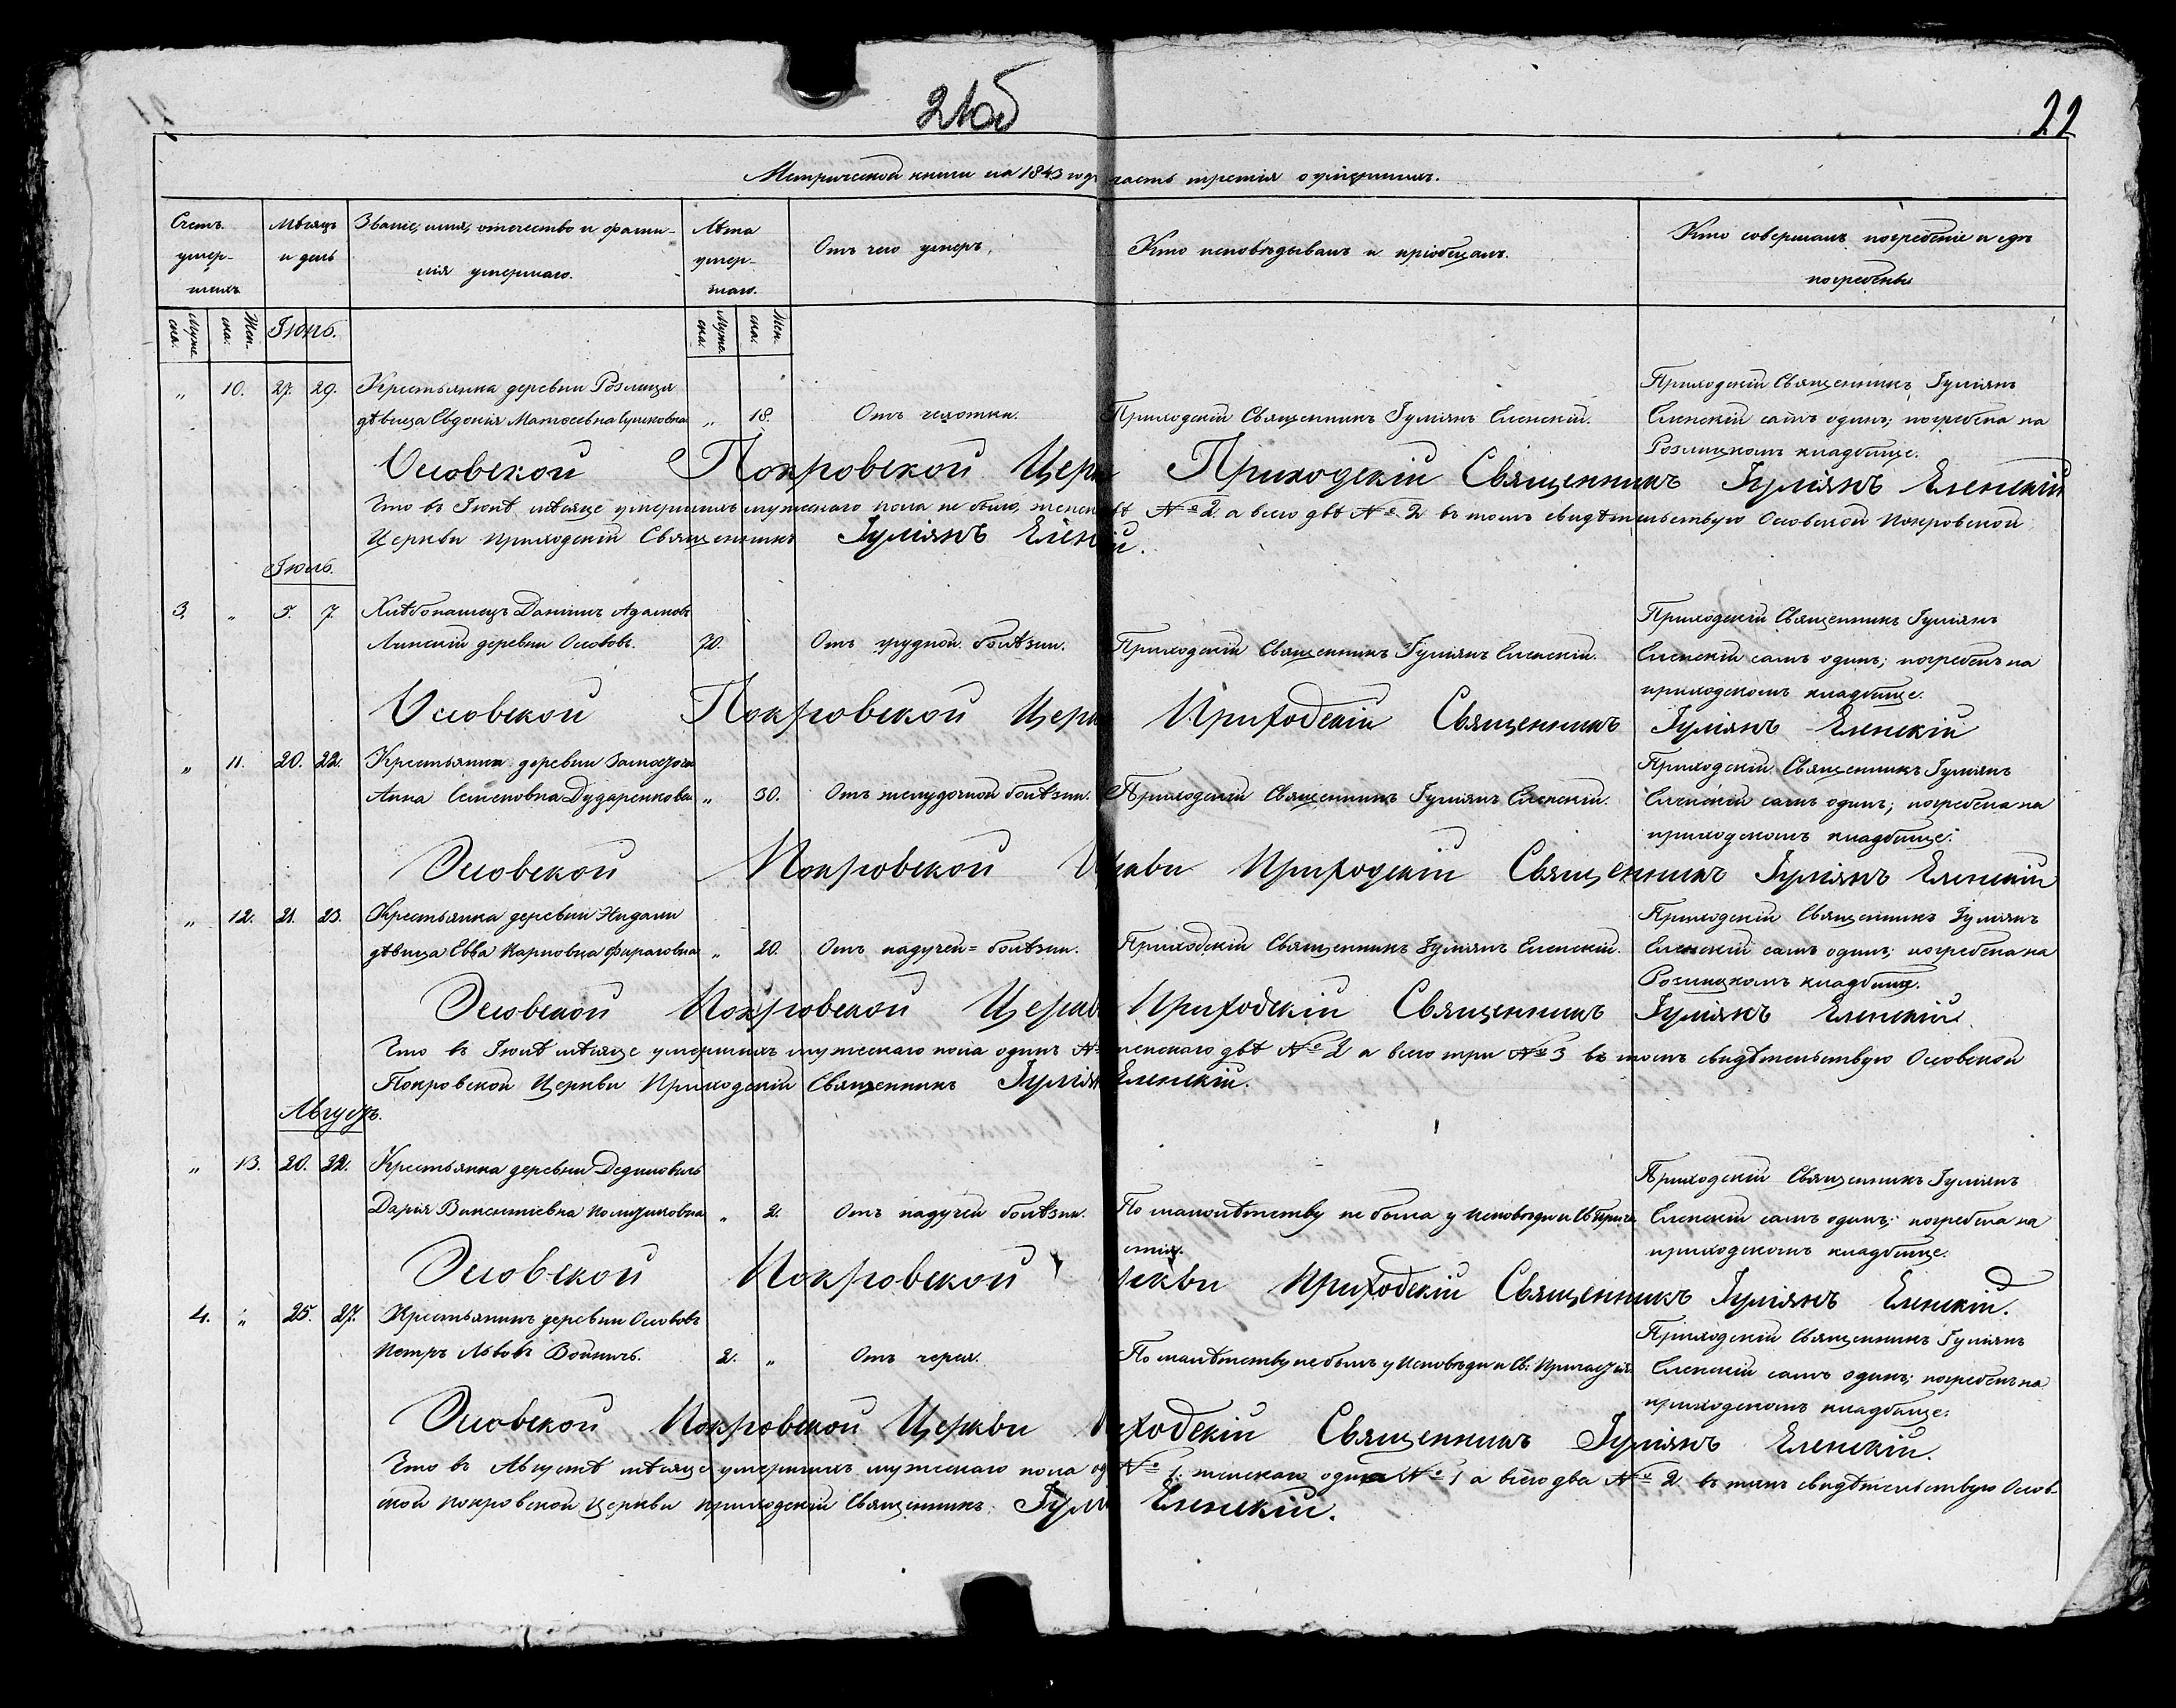 21об
22
Метрической книги на 1843 годъ часть третія о умершихъ.
Счетъ умер-шихъ
Мѣсяцъ и день
Званіе, имя, отечество и фами-
лія умершаго.
Лѣта умер-шаго.
Отъ чего умеръ,
Кто исповѣдывалъ и пріобщалъ.
Кто совершалъ погребеніе и гдѣ
погребены
Муже-ска.
Жен-ска.
Іюнь.
Муже-ска.
Жен-ска.
„ 10. 27. 29. Крестьянка деревни
дѣвица Евдокія „ 18. Отъ чахотки. Приходскій Священникъ Іуліянъ Еленскій.
Приходскій Священникъ Іуліянъ
Еленскій самъ одинъ; погребена на
кладбище.
Осовской Покровской Церк Приходскій Священникъ Іуліянъ Еленскій
Что въ Іюнѣ мѣсяце умершихъ мужескаго пола не было, женск двѣ № 2 а всего двѣ № 2 въ томъ свидѣтельствую Осовской Покровской
Церкви приходскій Священникъ Іуліянъ Еленскій.
Іюль.
3. „ 5. 7. Хлѣбопашецъ Даніилъ Адамовъ
Линскій деревни Осововъ. 70. Отъ грудной болѣзни. Приходскій Священникъ Іуліянъ Еленскій.
Приходскій Священникъ Іуліянъ
Еленскій самъ одинъ; погребенъ на
приходскомъ кладбище.
Осовской Покровской Церк Приходскій Священникъ Іуліянъ Еленскій
„ 11. 20. 22. Крестьянка деревни
Анна Семеновна Дударенкова „ 30. Отъ желудочной болѣзни. Приходскій Священникъ Іуліянъ Еленскій.
Приходскій Священникъ Іуліянъ
Еленскій самъ одинъ; погребена на
приходскомъ кладбище.
Осовской Покровской Церкви Приходскій Священникъ Іуліянъ Еленскій
„ 12. 21. 23. Крестьянка деревни
дѣвица Евва Карповна „ 20. Отъ падучей= болѣзни. Приходскій Священникъ Іуліянъ Еленскій.
Приходскій Священникъ Іуліянъ
Еленскій самъ одинъ; погребена на
кладбище.
Осовской Покровской Церкв Приходскій Священникъ Іуліянъ Еленскій
Что въ Іюлѣ мѣсяце умершихъ мужескаго пола одинъ № женскаго двѣ № 2 а всего три № 3 въ томъ свидѣтельствую Осовской
Покровской Церкви Приходскій Священникъ Іуліян Еленскій.
Августъ.
„ 13. 20. 22. Крестьянка деревни Дединовичъ
Дарія Викентіевна „ 2. Отъ падучей болѣзни. По малолѣтству не была у Исповѣди и Св. Прича
стія.
Приходскій Священникъ Іуліянъ
Еленскій самъ одинъ; погребена на
приходскомъ кладбище.
Осовской Покровской Церкви Приходскій Священникъ Іуліянъ Еленскій.
4. „ 25. 27. Крестьянинъ деревни Осововъ
Петръ Львовъ Войничъ. 2. „ Отъ черея. По малолѣтству не былъ у Исповѣди и Св: Причастія
Приходскій Священникъ Іуліянъ
Еленскій самъ одинъ; погребенъ на
приходскомъ кладбище.
Осовской Покровской Церкви Приходскій Священникъ Іуліянъ Еленскій.
Что въ Августѣ мѣсяце умершихъ мужескаго пола од № 1. женскаго одна № 1 а всего два № 2 въ томъ свидѣтельствую Осов-
ской Покровской Церкви приходскій Священникъ Іулі Еленскій.